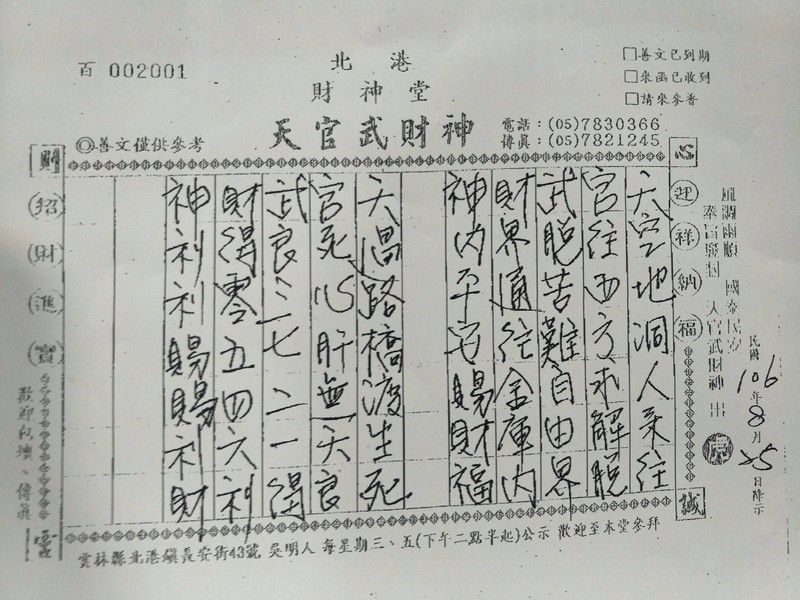 北港
財神堂
天官武財神
百 002001
◎善文僅供參考
電話：(05)7830366
傳真：(05)7821245
□善文已到期
□來函已收到
□請來參香
心
誠
財
靈
迎祥納福
招財進寶
風調雨順 國泰民安
天官武財神 出
民國106年8月25日降示
天空地洞人來往
官往西方求解脫
武脫苦難自由界
財界通往金庫內
神內平安賜財福
天過路橋渡生死
官死心肝無天良
武良三七二一得
財得零五四六利
神利利賜賜利財
歡迎 傳真
雲林縣北港鎮長安街43號 吳明人 每星期三、五(下午二點半起)公示 歡迎至本堂參拜